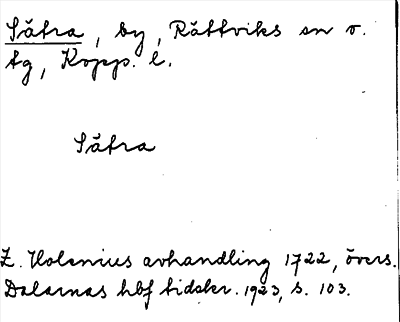 Sätra, by, Rättviks sn o.
tg, Kopp. l.
Sätra
Z. Holenius avhandling 1722, övers.
Dalarnas hbf tidskr. 1923, s. 103.